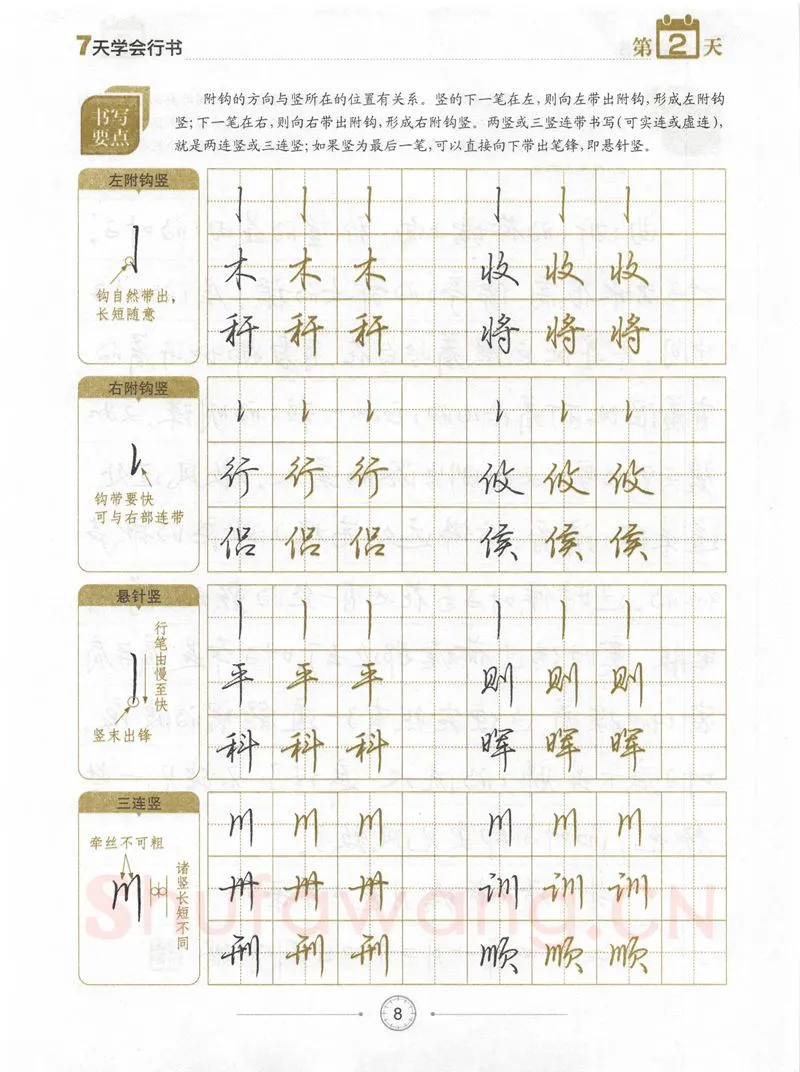 7天学会行书
第2天
书写
要点
附钩的方向与竖所在的位置有关系。竖的下一笔在左,则向左带出附钩,形成左附钩
竖;下一笔在右,则向右带出附钩,形成右附钩竖。两竖或三竖连带书写(可实连或虚连),
就是两连竖或三连竖;如果竖为最后一笔,可以直接向下带出笔锋,即悬针竖。
左附钩竖
钩自然带出,
长短随意
木 木 木 收 收 收
秆 秆 秆 将 将 将
右附钩竖
钩带要快
可与右部连带
行 行 行 攸 攸 攸
侣 侣 侣 侯 侯 侯
悬针竖
行笔由慢至快
竖末出锋
平 平 平 则 则 则
科 科 科 晖 晖 晖
三连竖
牵丝不可粗
诸竖长短不同
川 川 川 川 川 川
卅 卅 卅 训 训 训
刑 刑 刑 顺 顺 顺
Shufawang.CN
8